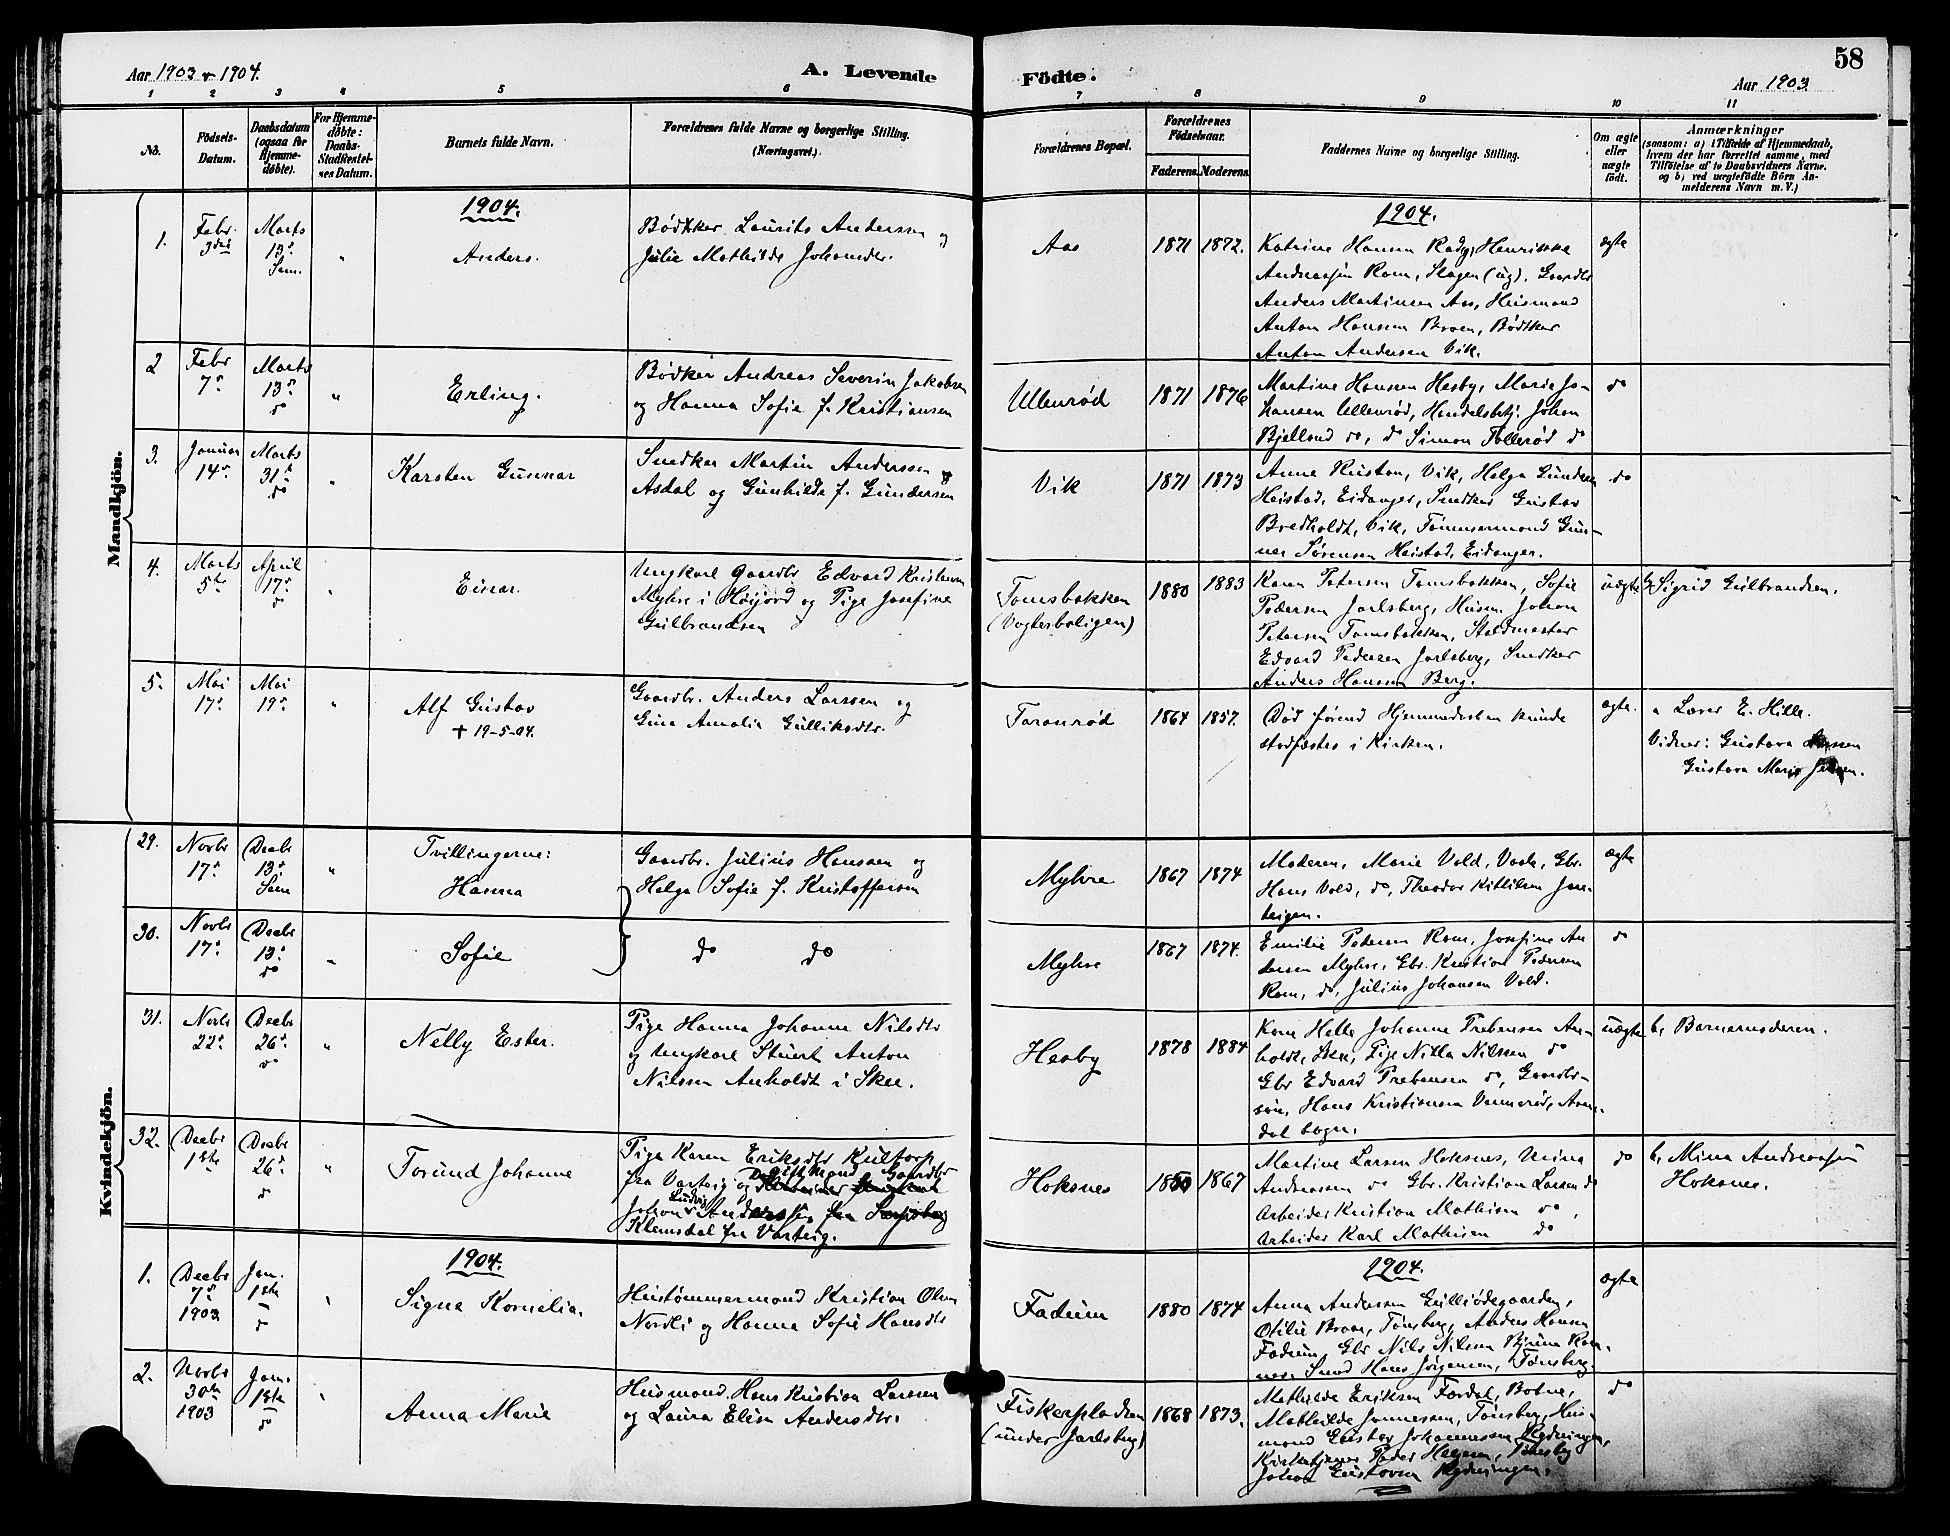 58
Aar 1903 & 1904.
A. Levende
Födte.
Aar 1903
1 2 3 4 5 6
7 8 9 10 11
No.
Födsels-
Datum.
Daabsdatum
(ogsaa for
Hjemme-
döbte).
For Hjemme-
döbte:
Daabs-
Stadfæstel-
ses Datum.
Barnets fulde Navn.
Forældrenes fulde Navne og borgerlige Stilling.
(Næringsvei.)
Forældrenes Bopæl.
Forældrenes
Födselsaar.
Faderens. Moderens.
Faddernes Navne og borgerlige Stilling.
Om ægte
eller
uægte
födt.
Anmærkninger
(saasom: a) i Tilfælde af Hjemmedaab,
hvem der har forrettet samme, med
Tilföielse af to Daabsvidners Navne.
og b) ved uægtefödte Börn An-
melderens Navn m. V.)
Mandkjön.
1904.
1904.
1.
Febr.
3die
Marts
13de
Sem.
"
Anders.
Bødker Laurits Anderssen og
Julie Mathilde Johansdr.
Aas
1871
1872.
Katrine Hansen Rady, Henrikke
Andreassen Rom, Skagen (ug). Gaardbr
Anders Martinsen Aas, Husmand
Anton Hansen Broen, Bødker
Anton Andersen Vik.
ægte
2
Febr
7de
Marts
13de
do
"
Erling.
Bødker Andreas Severin Jakobsen
og Hanna Sofie f. Kristiansen
Ullenrød
1871
1876
Martine Hansen Hesby, Marie Jo-
hansen Ullenrød, Handelsbetj. Johan
Bjelland do, do Simon Tollerød do
do
3.
Januar
14de
Marts
31te
do
"
Karsten Gunnar
Snedker Martin Anderssen
Asdal og Gunhilde f. Gundersen
Vik
1871
1873
Anne Rustan, Vik, Helga Gundersen
Heistad, Eidanger, Snedker Gustav
Bredholdt, Vik, Tømmermand Gun-
nar Sørensen Heistad, Eidanger.
do
4.
Marts
5te
April
17de
do
"
Einar.
Ungkarl Gaardbr Edvard Kristensen
Myhre i Høijord og Pige Josefine
Gulbrandsen
Tomsbakken
(Vogterboligen)
1880
1883
Karen Petersen Tomsbakken, Sofie
Pedersen Jarlsberg, Husm. Johan
Petersen Tomsbakken, Staldmester
Edvard Pedersen Jarlsberg, Snedker
Anders Hansen Berg.
uægte
b, Sigrid Gulbrandsen.
5.
Mai
17de
Mai
19de
"
Alf Gustav
† 19-5-04.
Gaardbr. Anders Larssen og
Gine Amalie Gulliksdtr.
Taranrød
1864
1857.
Død førend Hjemmedaaben kunde
stadfæstes i Kirken.
ægte.
a Lærer E. Hille.
Vidner: Gustava
Gustava Marie
Kvindekjön.
29.
Novbr
17de
Decbr
13de
Sem
"
Tvillingerne:
Hanna
Gaardbr. Julius Hanssen og
Helga Sofie f. Kristoffersen
Myhre
1867
1874
Moderen, Marie Vold, Vaale, Gbr.
Hans Vold, do, Theodor Kittilsen Jar-
teigen.
ægte
30.
Novbr
17de
Decbr
13de
do
"
Sofie
do do
Myhre
1867
1874.
Emilie Pedersen Rom, Josefine An-
dersen Myhre, Gbr. Kristian Pedersen
Rom, do, Julius Johansen Vold.
do
31.
Novbr
22de
Decbr
26de
do
"
Nelly Ester.
Pige Hanna Johanne Nilsdtr
og Ungkarl Stuert Anton
Nilssen Anholdt i Skee.
Hesby
1878
1884
Kone Helle Johanne Prebensen An-
holdt, Skee, Pige Nilla Nilssen do
Gbr Edvard Prebensen do, Gaardbr-
søn, Hans Kristiansen Unnerød, Aren-
dal sogn.
uægte
b, Barnemoderen.
32.
Decbr
1ste
Decbr
26de
do
"
Torund Johanne
Pige Karen Eriksdtr Kultorp
fra Varteig og Gift Mand Gaardbr
Johan Ludvig
Klemsdal fra Varteig.
Hoksnes
1867
Martine Larsen Hoksnes, Mina
Andreassen do Gbr. Kristian Larsen do
Arbeider Kristian Mathisen do,
Arbeider Karl Mathisen do
do
b, Mina Andreassen
Hoksnes.
1904.
1904.
1.
Decbr
7de
1903
Jan.
1ste
do
"
Signe Kornelia.
Hustømmermand Kristian Olsen
Nordli og Hanna Sofie Hansdtr
Fadum
1880
1874
Anna Andersen Gulliødegaarden,
Otilie Broen, Tønsberg, Anders Hansen
Fadum, Gbr Nils Nilsen Bjune Ram-
nes, Smed Hans Jørgensen, Tønsberg.
ægte
2.
Novbr
30te
1903
Jan.
1ste
do
"
Anna Marie
Husmand. Hans Kristian Larssen
og Laura Elise Andersdtr.
Fiskerpladsen
(under Jarlsberg)
1868
1873.
Mathilde Eriksen Førdal, Botne,
Mathilde Johannessen, Tønsberg, Hus-
mand Gustav Johannessen Rydningen,
Kirketjener Peder Hansen, Tønsberg
Johan Gustavsen Rydningen.
do